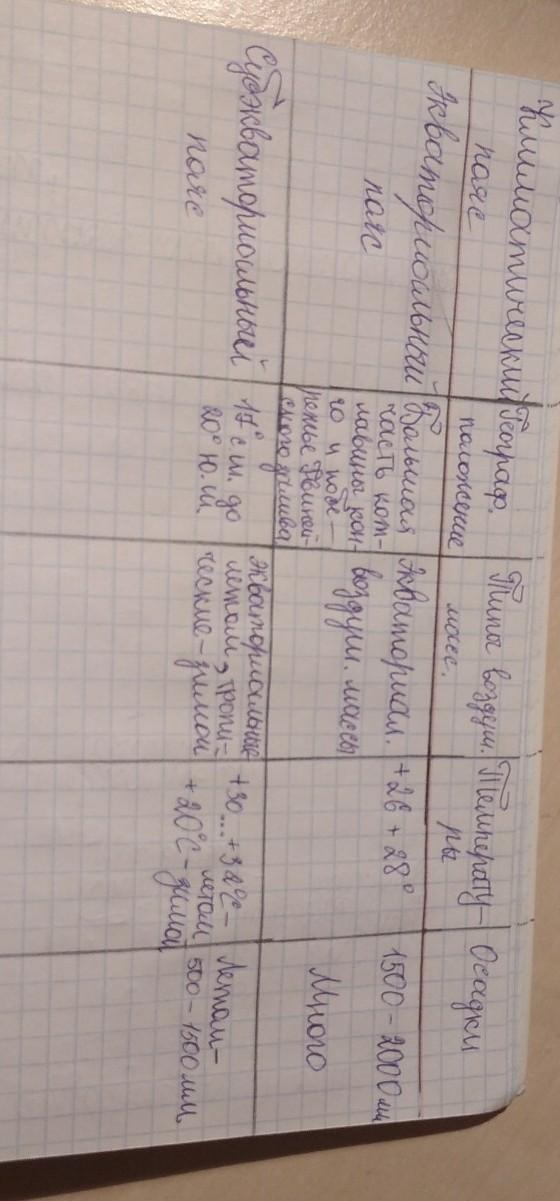 Климатический
пояс
Географ.
положение
Типы воздуш.
масс.
Температу-
ры
Осадки
Экваториальный
пояс
Большая
часть кот-
лавины Кон-
го и побе-
режье Гвиней-
ского залива
Экваториал.
воздуш. массы
+26 +28°
1500-2000 мм
Много
Субэкваториальный
пояс
17° с.ш. до
20° ю.ш
Экваториальные
летом, тропи-
ческие - зимой
+30...+32°С -
летом
+20°С - зимой
Летом -
500-1500 мм,